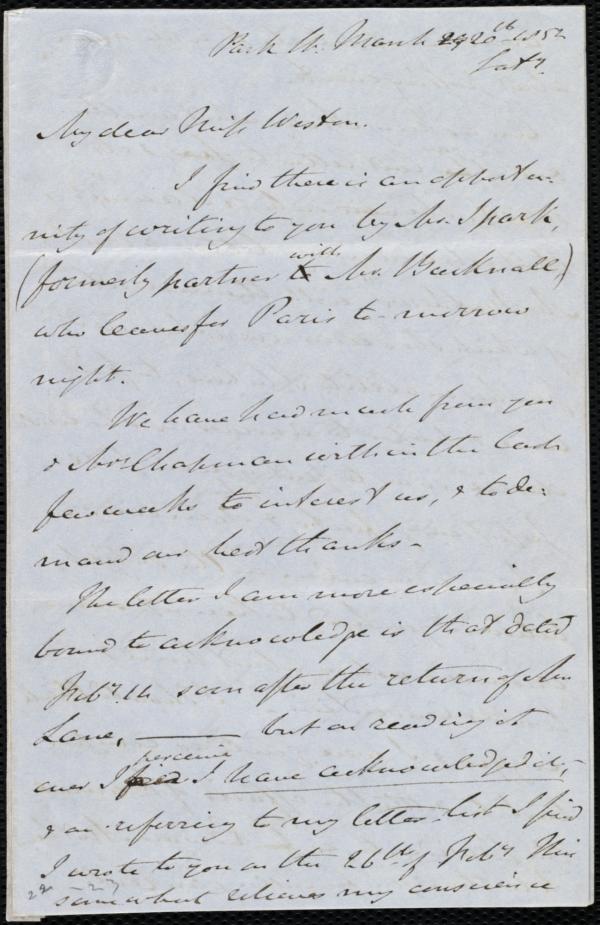 Park St. March 20th 1852
Saty.
My dear Miss Weston.
I find there is an opportu-
nity of writing to you by Mr. Spark,
(formerly partner with Mr. Bucknall)
who leaves for Paris to-morrow
night.
We have had much from you
& Mrs Chapman within the last
few weeks to interest us, & to de-
mand our best thanks-
The letter I am more especially
bound to acknowledge is that dated
Feby. 14 soon after the return of Mr
Lane, —— but on reading it
over I perceive I have acknowledged it,
& on referring to my letter-list I find
I wrote to you on the 26th of Feby This
somewhat relieves my conscience